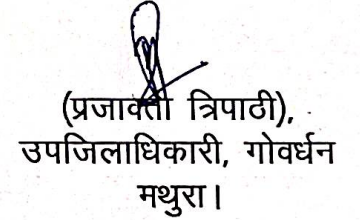 (प्रजाक्ता त्रिपाठी),
उपजिलाधिकारी, गोवर्धन
मथुरा।